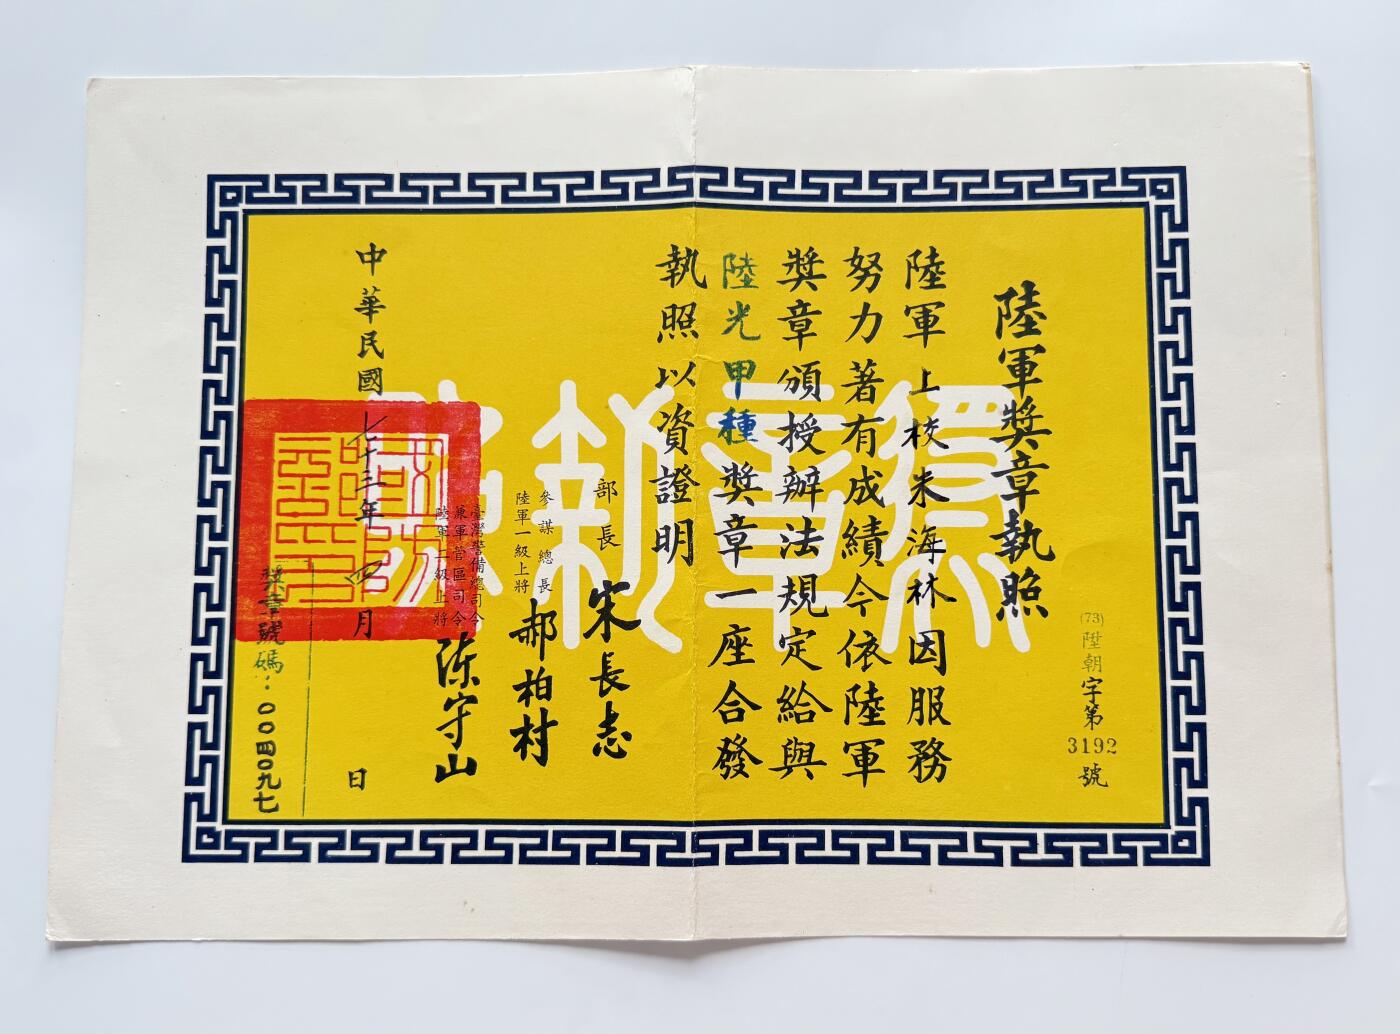 陸軍獎章執照
(73)陞朝字第3192號
陸軍上校朱海林因服務
努力著有成績今依陸軍
獎章頒授辦法規定給與
陸光甲種獎章一座合發
執照以資證明
部長宋長志
參謀總長
陸軍一級上將
郝柏村
臺灣警備總司令
兼軍管區司令
陸軍二級上將
陳守山
中華民國七十三年四月 日
獎章號碼:〇〇四〇九七